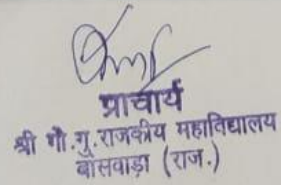 प्राचार्य
श्री गो.गु.राजकीय महाविद्यालय
बाँसवाड़ा (राज.)